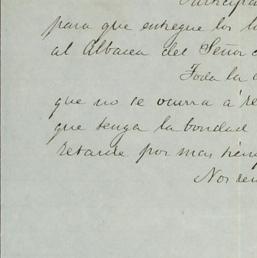 Participa
para que entregue los l
al Albacea del Señor
Toda la
que no se ocurra á re
que tenga la bondad
retarde por mas tiem
Nos